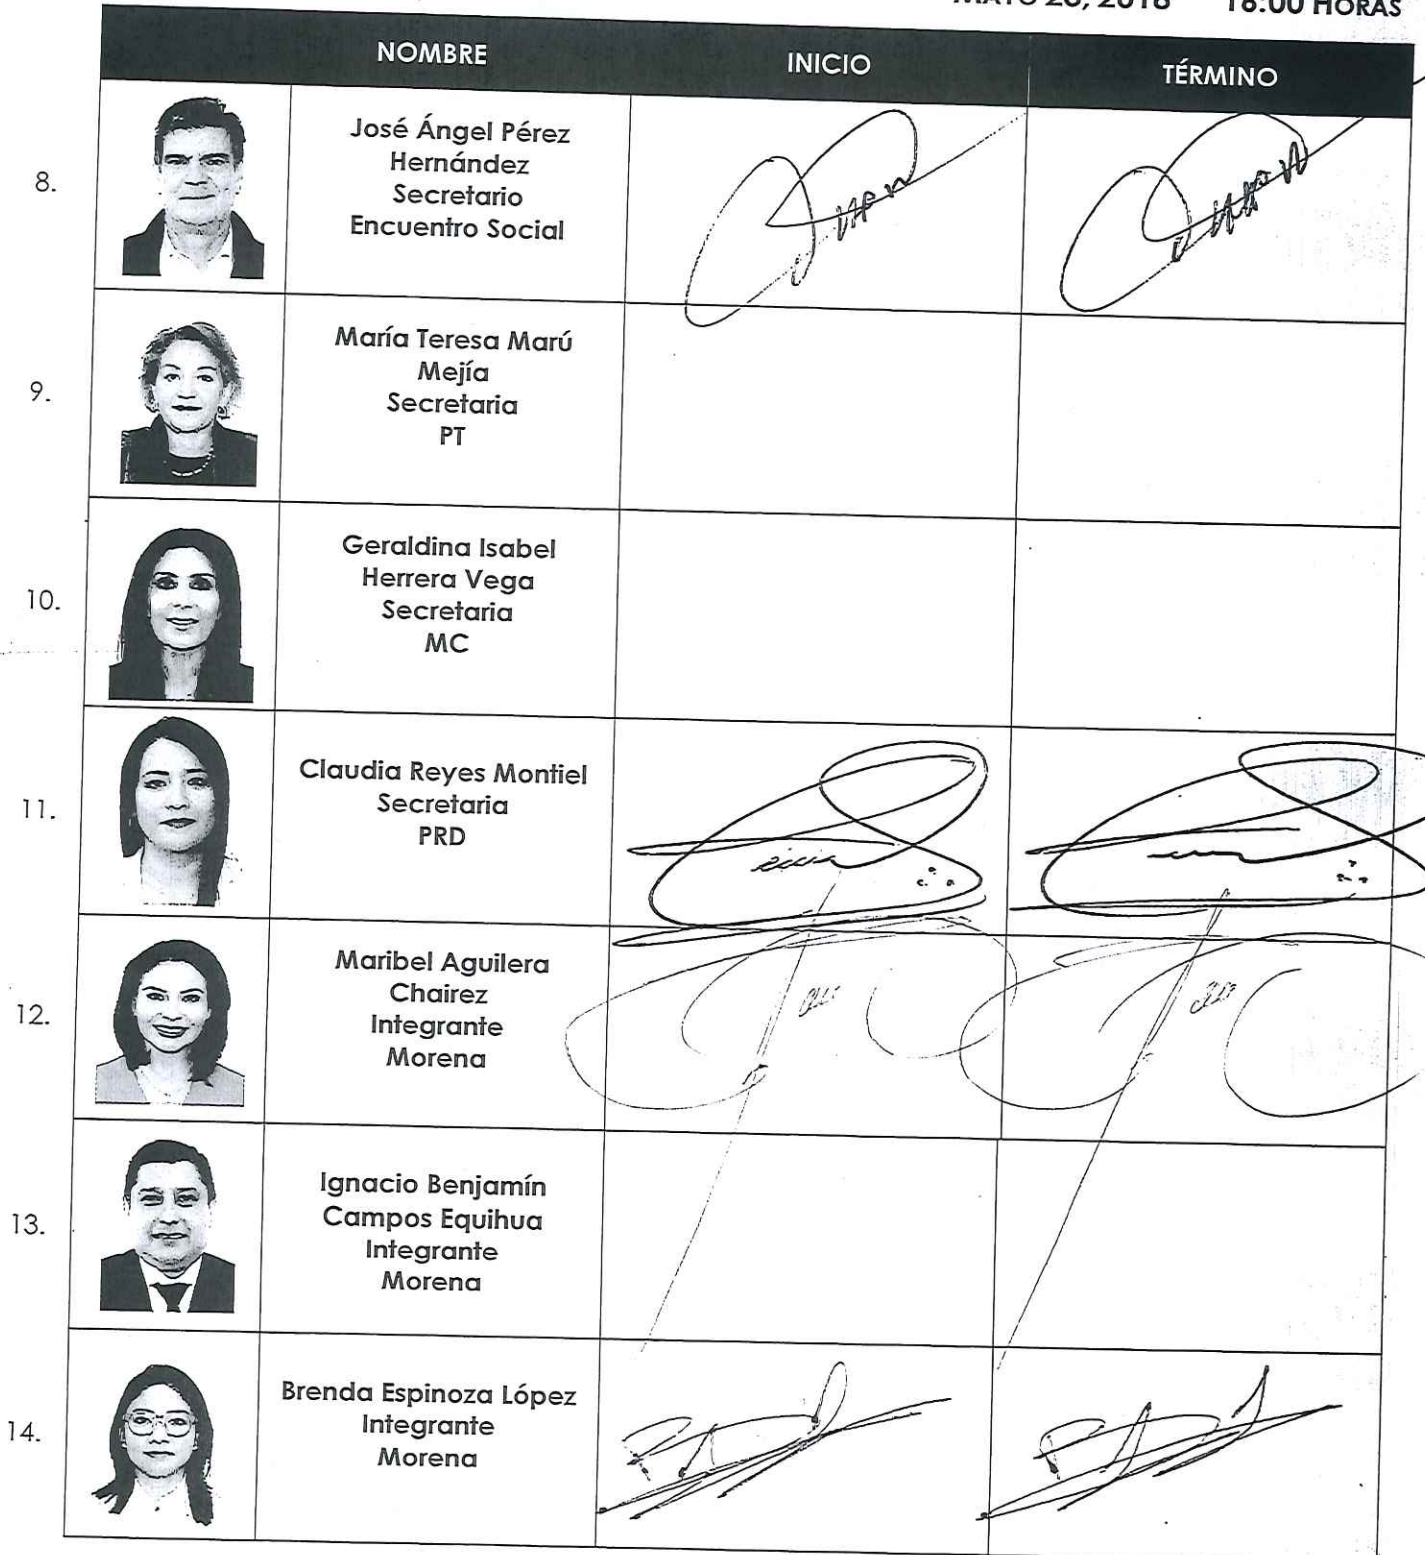 18:00 HORAS
NOMBRE INICIO TÉRMINO
8.
José Ángel Pérez
Hernández
Secretario
Encuentro Social
9.
María Teresa Marú
Mejía
Secretaria
PT
10.
Geraldina Isabel
Herrera Vega
Secretaria
MC
11.
Claudia Reyes Montiel
Secretaria
PRD
12.
Maribel Aguilera
Chairez
Integrante
Morena
13.
Ignacio Benjamín
Campos Equihua
Integrante
Morena
14.
Brenda Espinoza López
Integrante
Morena